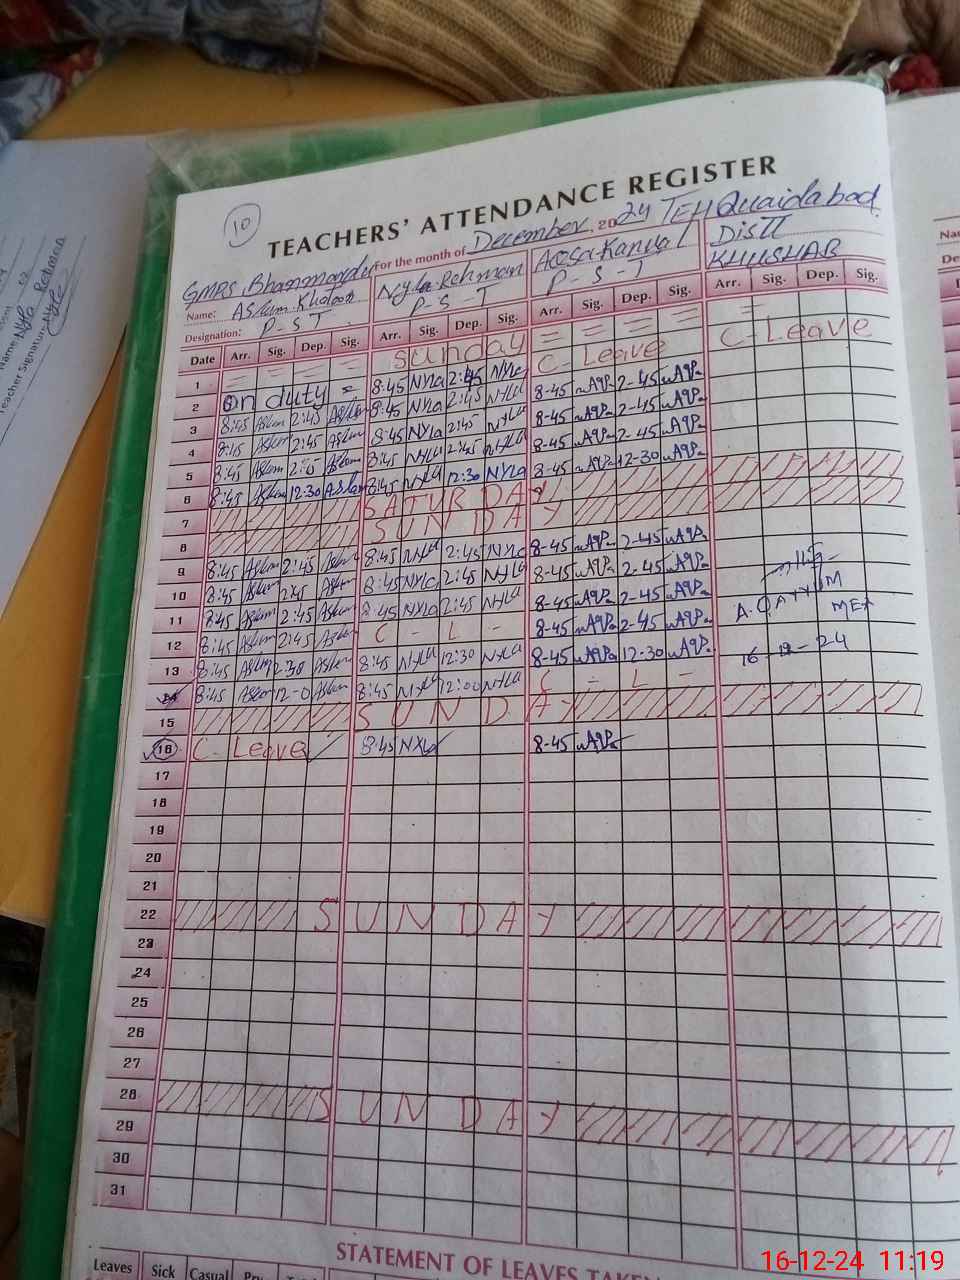 10
TEACHERS' ATTENDANCE REGISTER
For the month of December, 2024 TEH Quaidabad
Distt
KHUSHAB
GMPS
Name: Aslam Nyla Rehman Kanwal
Designation: P-ST P-S-T P-S-T
Date Arr. Sig. Dep. Sig. Arr. Sig. Dep. Sig. Arr. Sig. Dep. Sig. Arr. Sig. Dep. Sig.
1 Sunday
2 on duty = 8:45 Nyla 2:45 Nyla C-Leave C-Leave
3 8:45 Aslam 2:45 Aslam 8:45 Nyla 2:45 Nyla 8-45 2-45
4 8:45 Aslam 2:45 Aslam 8:45 Nyla 2:45 Nyla 8-45 2-45
5 8:45 Aslam 2:45 Aslam 8:45 Nyla 2:45 Nyla 8-45 2-45
6 8:45 Aslam 12:30 Aslam 8:45 Nyla 12:30 Nyla 8-45 12-30
7 SATURDAY
8 SUNDAY
9 8:45 Aslam 2:45 Aslam 8:45 Nyla 2:45 Nyla 8-45 2-45
10 8:45 Aslam 2:45 Aslam 8:45 Nyla 2:45 Nyla 8-45 2-45
11 8:45 Aslam 2:45 Aslam 8:45 Nyla 2:45 Nyla 8-45 2-45
12 8:45 Aslam 2:45 Aslam C - L - 8-45 2-45
13 8:45 Aslam 12:30 Aslam 8:45 Nyla 12:30 Nyla 8-45 12-30
14 8:45 Aslam 12-0 Aslam 8:45 Nyla 12:00 Nyla C - L -
A.QAYYUM
MEA
16-12-24
15 SUNDAY
16 C-Leave 8:45 Nyla 8-45
17
18
19
20
21
22 SUNDAY
23
24
25
26
27
28
29 SUNDAY
30
31
STATEMENT OF LEAVES TAKEN
Leaves Sick Casual
Name: Nyla Rehman
Teacher Signature
16-12-24 11:19